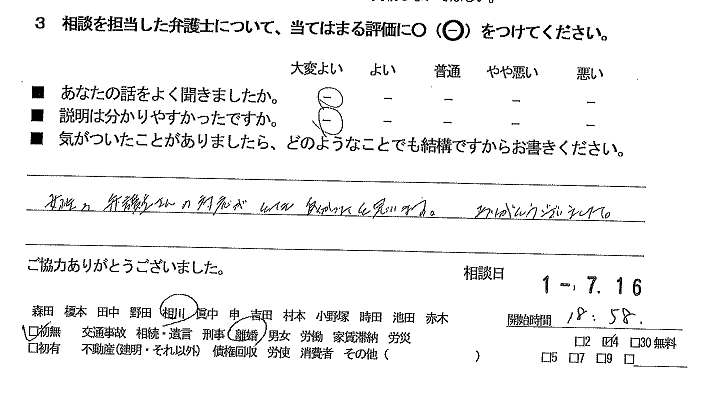 3 相談を担当した弁護士について、当てはまる評価に〇(㊀)をつけてください。
大変よい よい 普通 やや悪い 悪い
■ あなたの話をよく聞きましたか。 － － － － －
■ 説明は分かりやすかったですか。 － － － － －
■ 気がついたことがありましたら、どのようなことでも結構ですからお書きください。
女性の弁護士さんの対応がとても良かったと思います。ありがとうございました。
ご協力ありがとうございました。
相談日 1-.7.16
森田 榎本 田中 野田 相川 眞中 申 吉田 村本 小野塚 時田 池田 赤木
開始時間 18:58.
☑初無 交通事故 相続・遺言 刑事 離婚 男女 労働 家賃滞納 労災
□2 ☑4 □30無料
□初有 不動産(建明・それ以外) 債権回収 労使 消費者 その他( )
□5 □7 □9 □